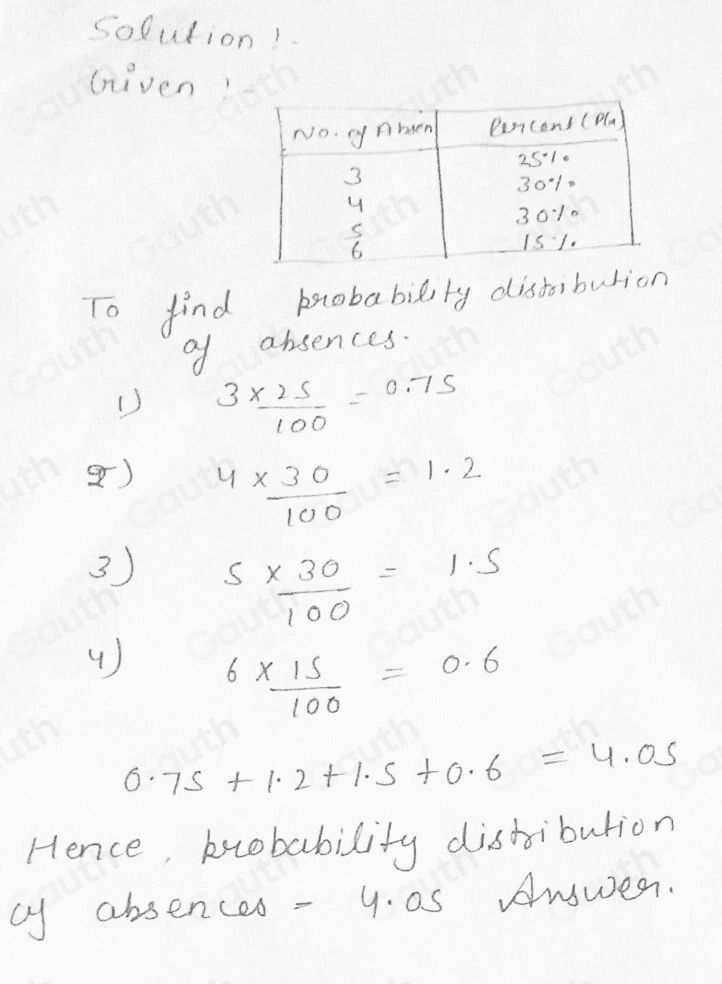 Solution :-
Given :-
No. of Absen Percent (P(a)
3 25%
4 30%
5 30%
6 15%
To find probability distribution
of absences.
1) 3 × 25/100 = 0.75
2) 4 × 30/100 = 1.2
3) 5 × 30/100 = 1.5
4) 6 × 15/100 = 0.6
0.75 + 1.2 + 1.5 + 0.6 = 4.05
Hence, probability distribution
of absences = 4.05 Answer.